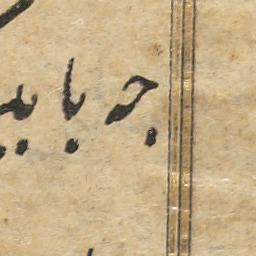 چه باید